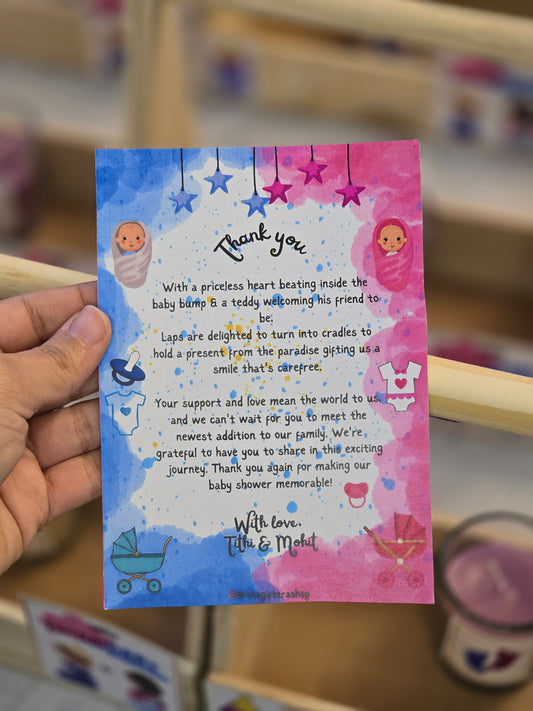 Thank you
With a priceless heart beating inside the
baby bump & a teddy welcoming his friend to
be.
Laps are delighted to turn into cradles to
hold a present from the paradise gifting us a
smile that's carefree.
Your support and love mean the world to us,
and we can't wait for you to meet the
newest addition to our family. We're
grateful to have you to share in this exciting
journey. Thank you again for making our
baby shower memorable!
With love,
Tithi & Mohit